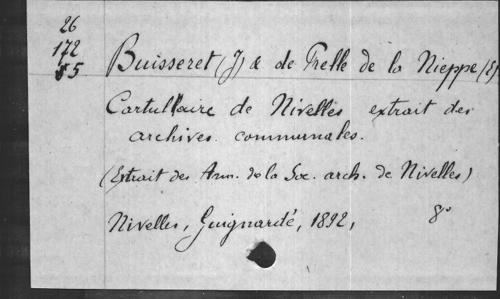 26
172
55
Buisseret (J) & de Prelle de la Nieppe (E)
Cartullaire de Nivelles extrait des
archives communales.
(Extrait des Ann. de la Soc. arch. de Nivelles)
Nivelles, Guignardé, 1892, 8°